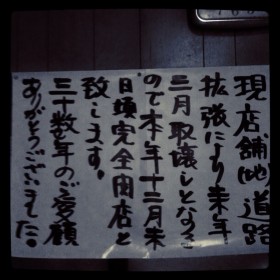 現店舗地道路
拡張により来年
三月取壊しとなる
ので本年十二月末
日頃完全閉店と
致します。
三十数年のご愛顧
ありがとうございました。